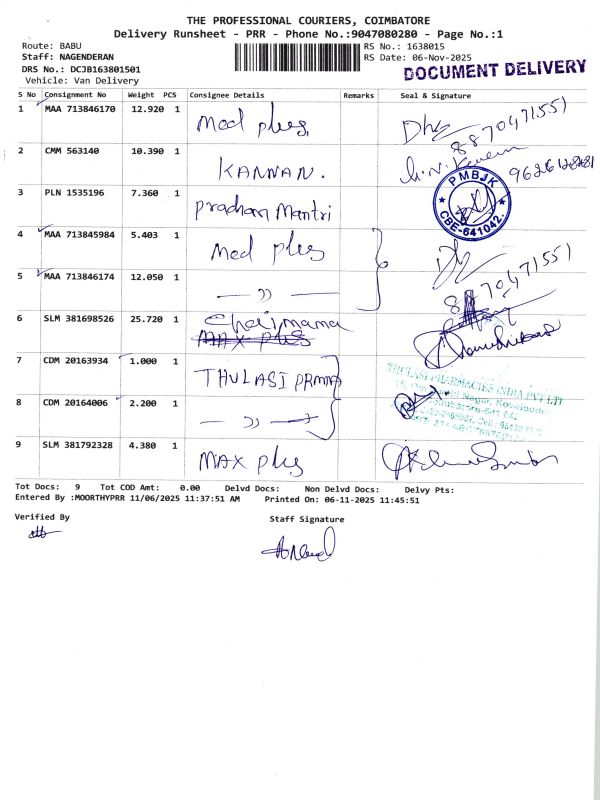 THE PROFESSIONAL COURIERS, COIMBATORE
Delivery Runsheet - PRR - Phone No.:9047080280 - Page No.:1
Route: BABU
RS No.: 1638015
Staff: NAGENDERAN
RS Date: 06-Nov-2025
DRS No.: DCJB163801501
Vehicle: Van Delivery
DOCUMENT DELIVERY
S No Consignment No Weight PCS Consignee Details Remarks Seal & Signature
1 MAA 713846170 12.920 1 Med plus, 8870471551
2 CMM 563140 10.390 1 KANNAN.
3 PLN 1535196 7.360 1 Pradhan Mantri
PMBJK
CBE-641042.
4 MAA 713845984 5.403 1 Med plus
5 MAA 713846174 12.050 1 — " — 8870471551
6 SLM 381698526 25.720 1
MAX plus
7 CDM 20163934 1.000 1 THULASI
THULASI PHARMACIES INDIA PVT LTD
8 CDM 20164006 2.200 1 — " —
9 SLM 381792328 4.380 1 MAX plus
Tot Docs: 9 Tot COD Amt: 0.00 Delvd Docs: Non Delvd Docs: Delvy Pts:
Entered By :MOORTHYPRR 11/06/2025 11:37:51 AM Printed On: 06-11-2025 11:45:51
Verified By
Staff Signature